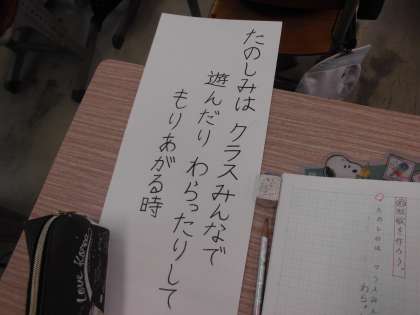 たのしみは クラスみんなで
遊んだり わらったりして
もりあがる時
Love
を作ろう。
たのしみは クラスみん
わら